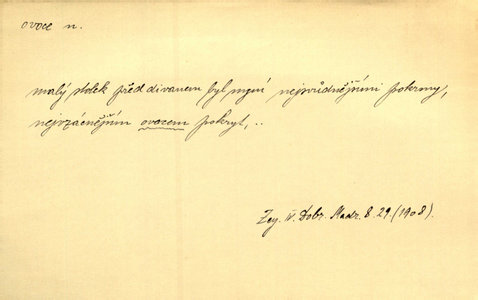 ovoce n.
malý stolek před divanem byl nyní nejvůdnějšími pokrmy,
nejvzácnějším ovocem pokryt, ..
Zey. IV. Dobr. Madr. 8. 29. (1908).